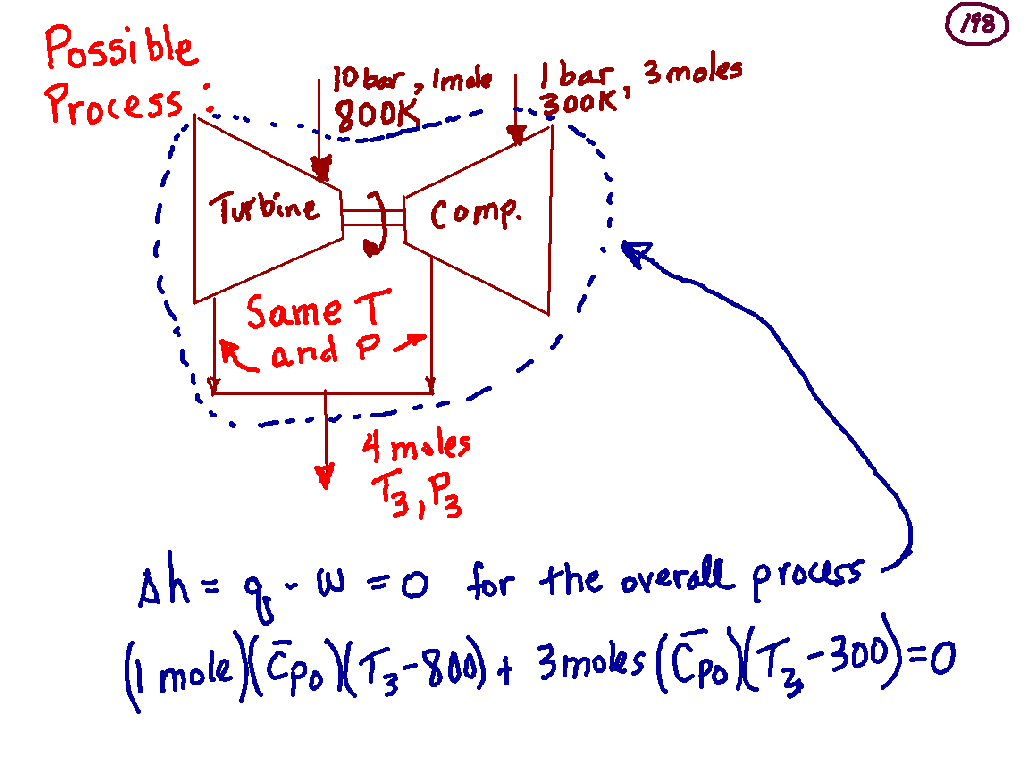 198
Possible
Process:
10 bar, 1 mole
800K
1 bar, 3 moles
300K
Turbine
Comp.
Same T
and P
4 moles
T₃, P₃
Δh = q - w = 0 for the overall process
(1 mole)(C̄po)(T₃-800) + 3 moles (C̄po)(T₃-300)=0